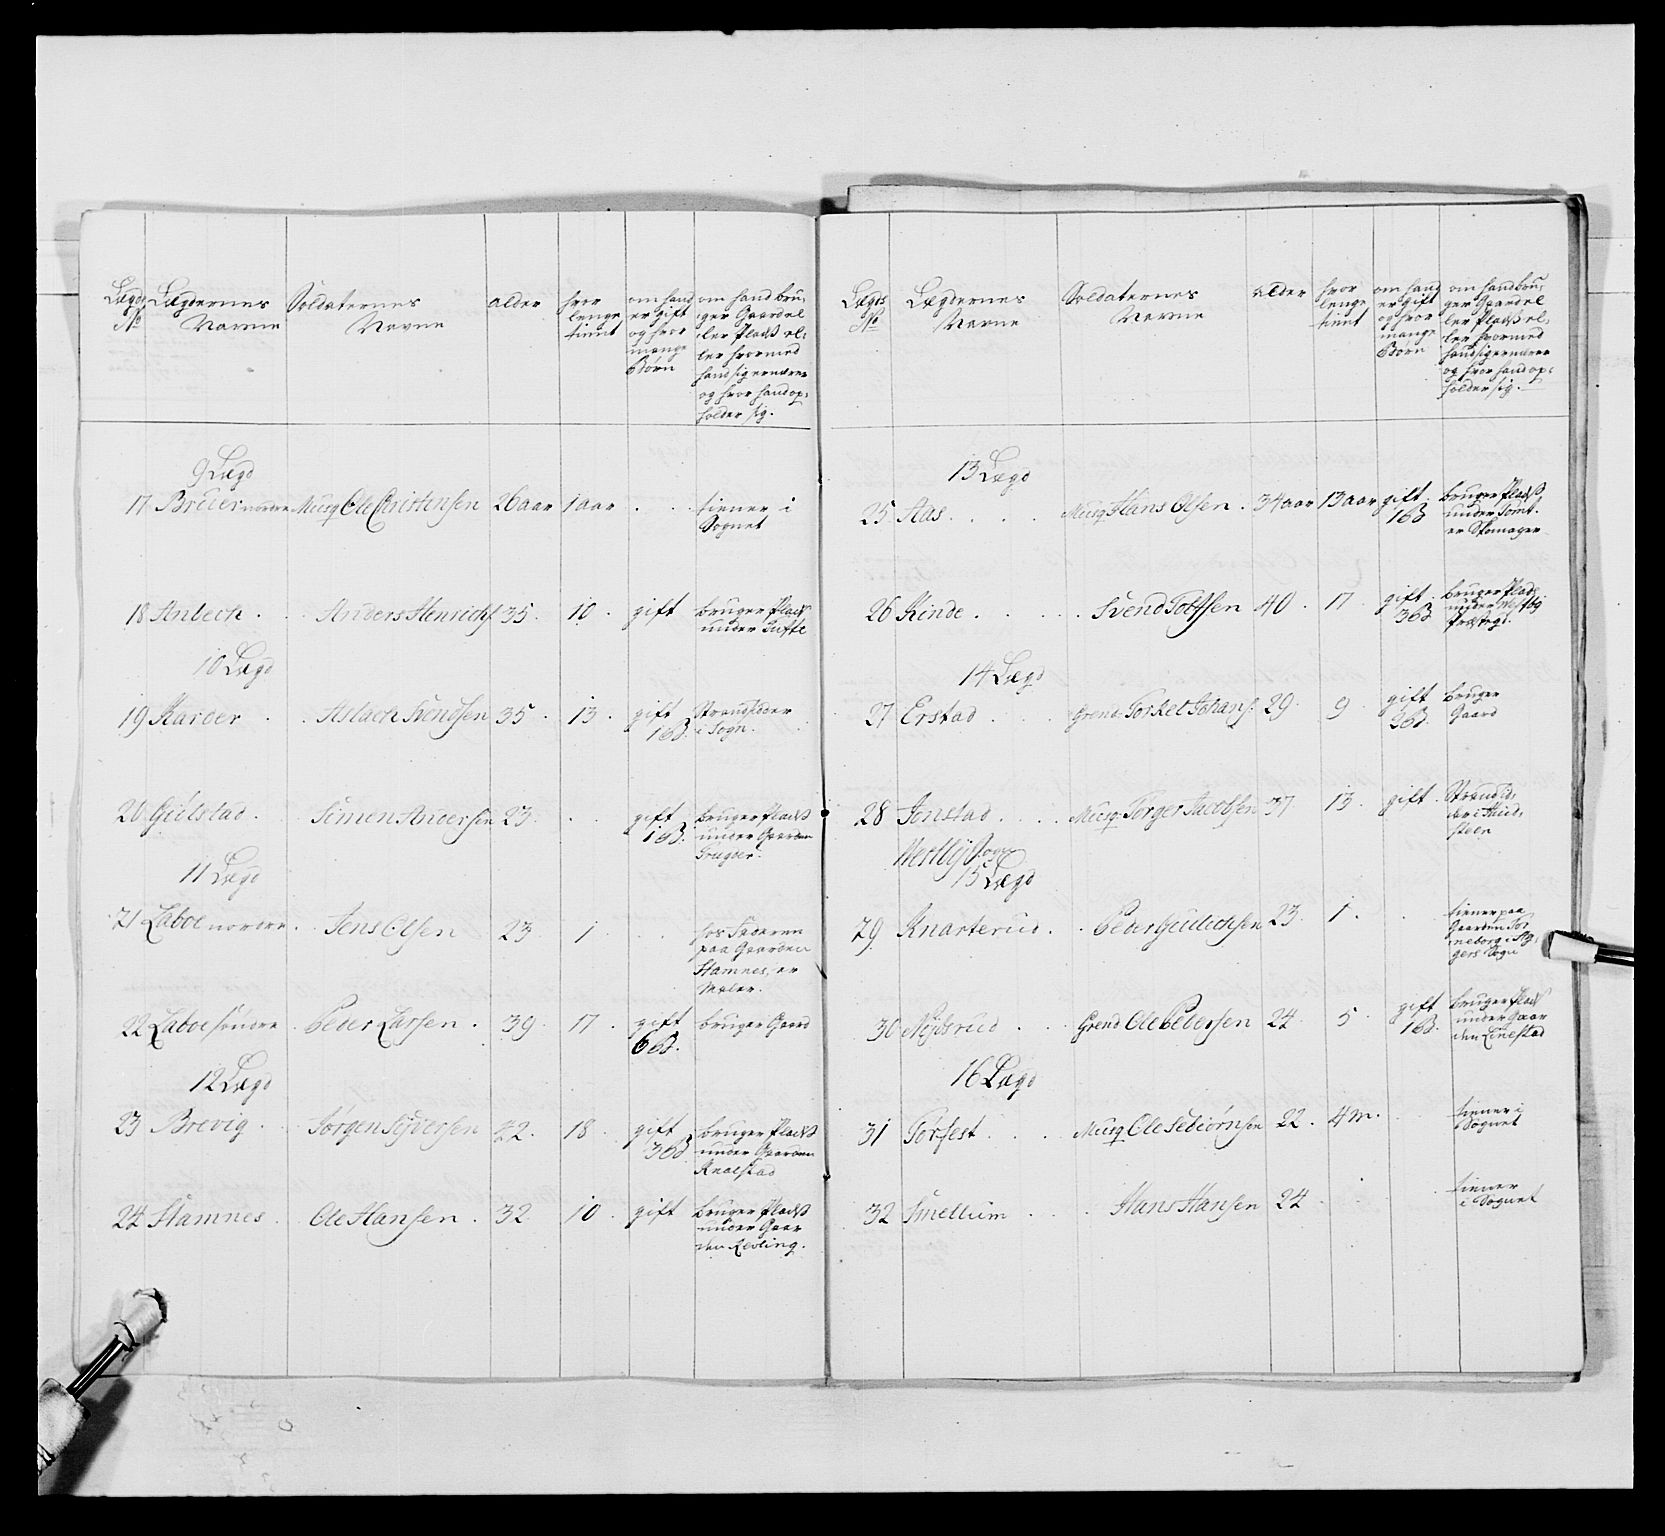 Lægds No
Lægdernes Navne
Soldaternes Navne
alder
hvor lenge tient
om hand er gift og hvor mange Børn
om hand bru-
ger Gaard el-
ler Pladß el-
ler hvormed
hand sig ernærer
og hvor hand op-
holder sig.
9 Lægd
17 Brüer nordre Musq Ole Christensen 26 aar 1 aar . . . tiener i Sognet
18 Anbech . . . Anders Henrichs 35 . 10 . gift bruger Plads under
10 Lægd
19 Karder . . Aslach Svendsen 35 . 13 . gift 1 B. Strandsidder i Sogn.
20 Gülstad . . Simen Andersen 23 . . . gift 1 B. bruger Pladß under Gaarden
11 Lægd
21 Laboe nordre . . Jens Olsen 23 1 . . . hos Faderen paa Gaarden Stamnes, er Maler.
22 Laboe søndre . Peder Larsen . 39 . 17 . gift 6 B. bruger Gaard
12 Lægd
23 Brevig . . Jørgen Syversen 42 . 18 . gift 3 B. bruger Pladß under Gaarden
24 Stamnes . . Ole Hansen . 32 . 10 . gift bruger Pladß under Gaarden Revling.
Lægds No
Lægdernes Navne
Soldaternes Navne
alder
hvor lenge tient
om hand er gift og hvor mange Børn
om hand bru-
ger Gaard el-
ler Pladß el-
ler hvormed
hand sig ernærer
og hvor hand op-
holder sig.
13 Lægd
25 Aas . . . . Musq Hans Olsen . 34 aar 13 aar gift . 1 B bruger Pladß under Tomt. er Skomager
26 Kinde . . . . Svend 40 . 17 . gift . 3 B bruger Plads under Westby
14 Lægd
27 Erstad . . . Grend. Torkel Johans. 29 . 9 gift 2 B. bruger Gaard
28 Jonstad . . . Musq. Torger Jacobsen 37 13 . gift .
Westby Sogn
15 Lægd
29 Knarterud . . Peder Gulichsen 23 . 1 . . tiener paa Gaarden Sogn
30 Nyberud . . Grend Ole Pedersen 24 5 . gift 1 B. bruger Plads under Gaarden
16 Lægd
31 Torfest . . . Musq Ole Tebiørnsen 22 . 4 m. . . tiener i Sognet
32 Smellum . . . Hans Hansen 24 . . . tiener i Sognet